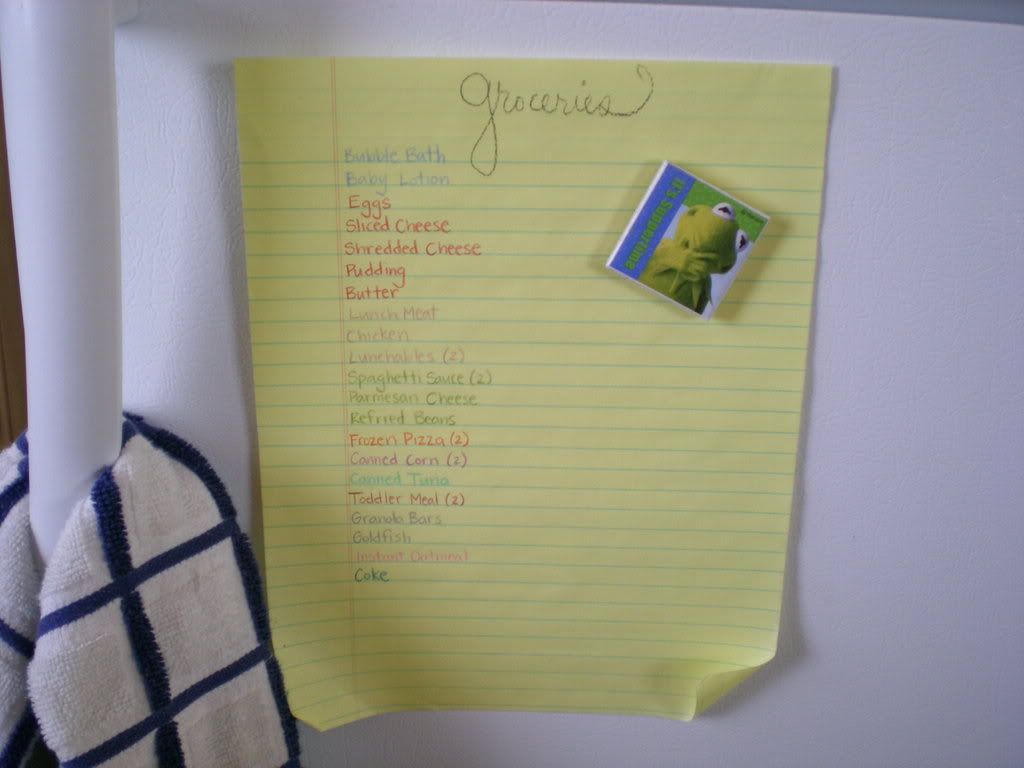 groceries
Bubble Bath
Baby Lotion
Eggs
Sliced Cheese
Shredded Cheese
Pudding
Butter
Lunch Meat
Chicken
Lunchables (2)
Spaghetti Sauce (2)
Parmesan Cheese
Refried Beans
Frozen Pizza (2)
Canned Corn (2)
Canned Tuna
Toddler Meal (2)
Granola Bars
Goldfish
Instant Oatmeal
Coke